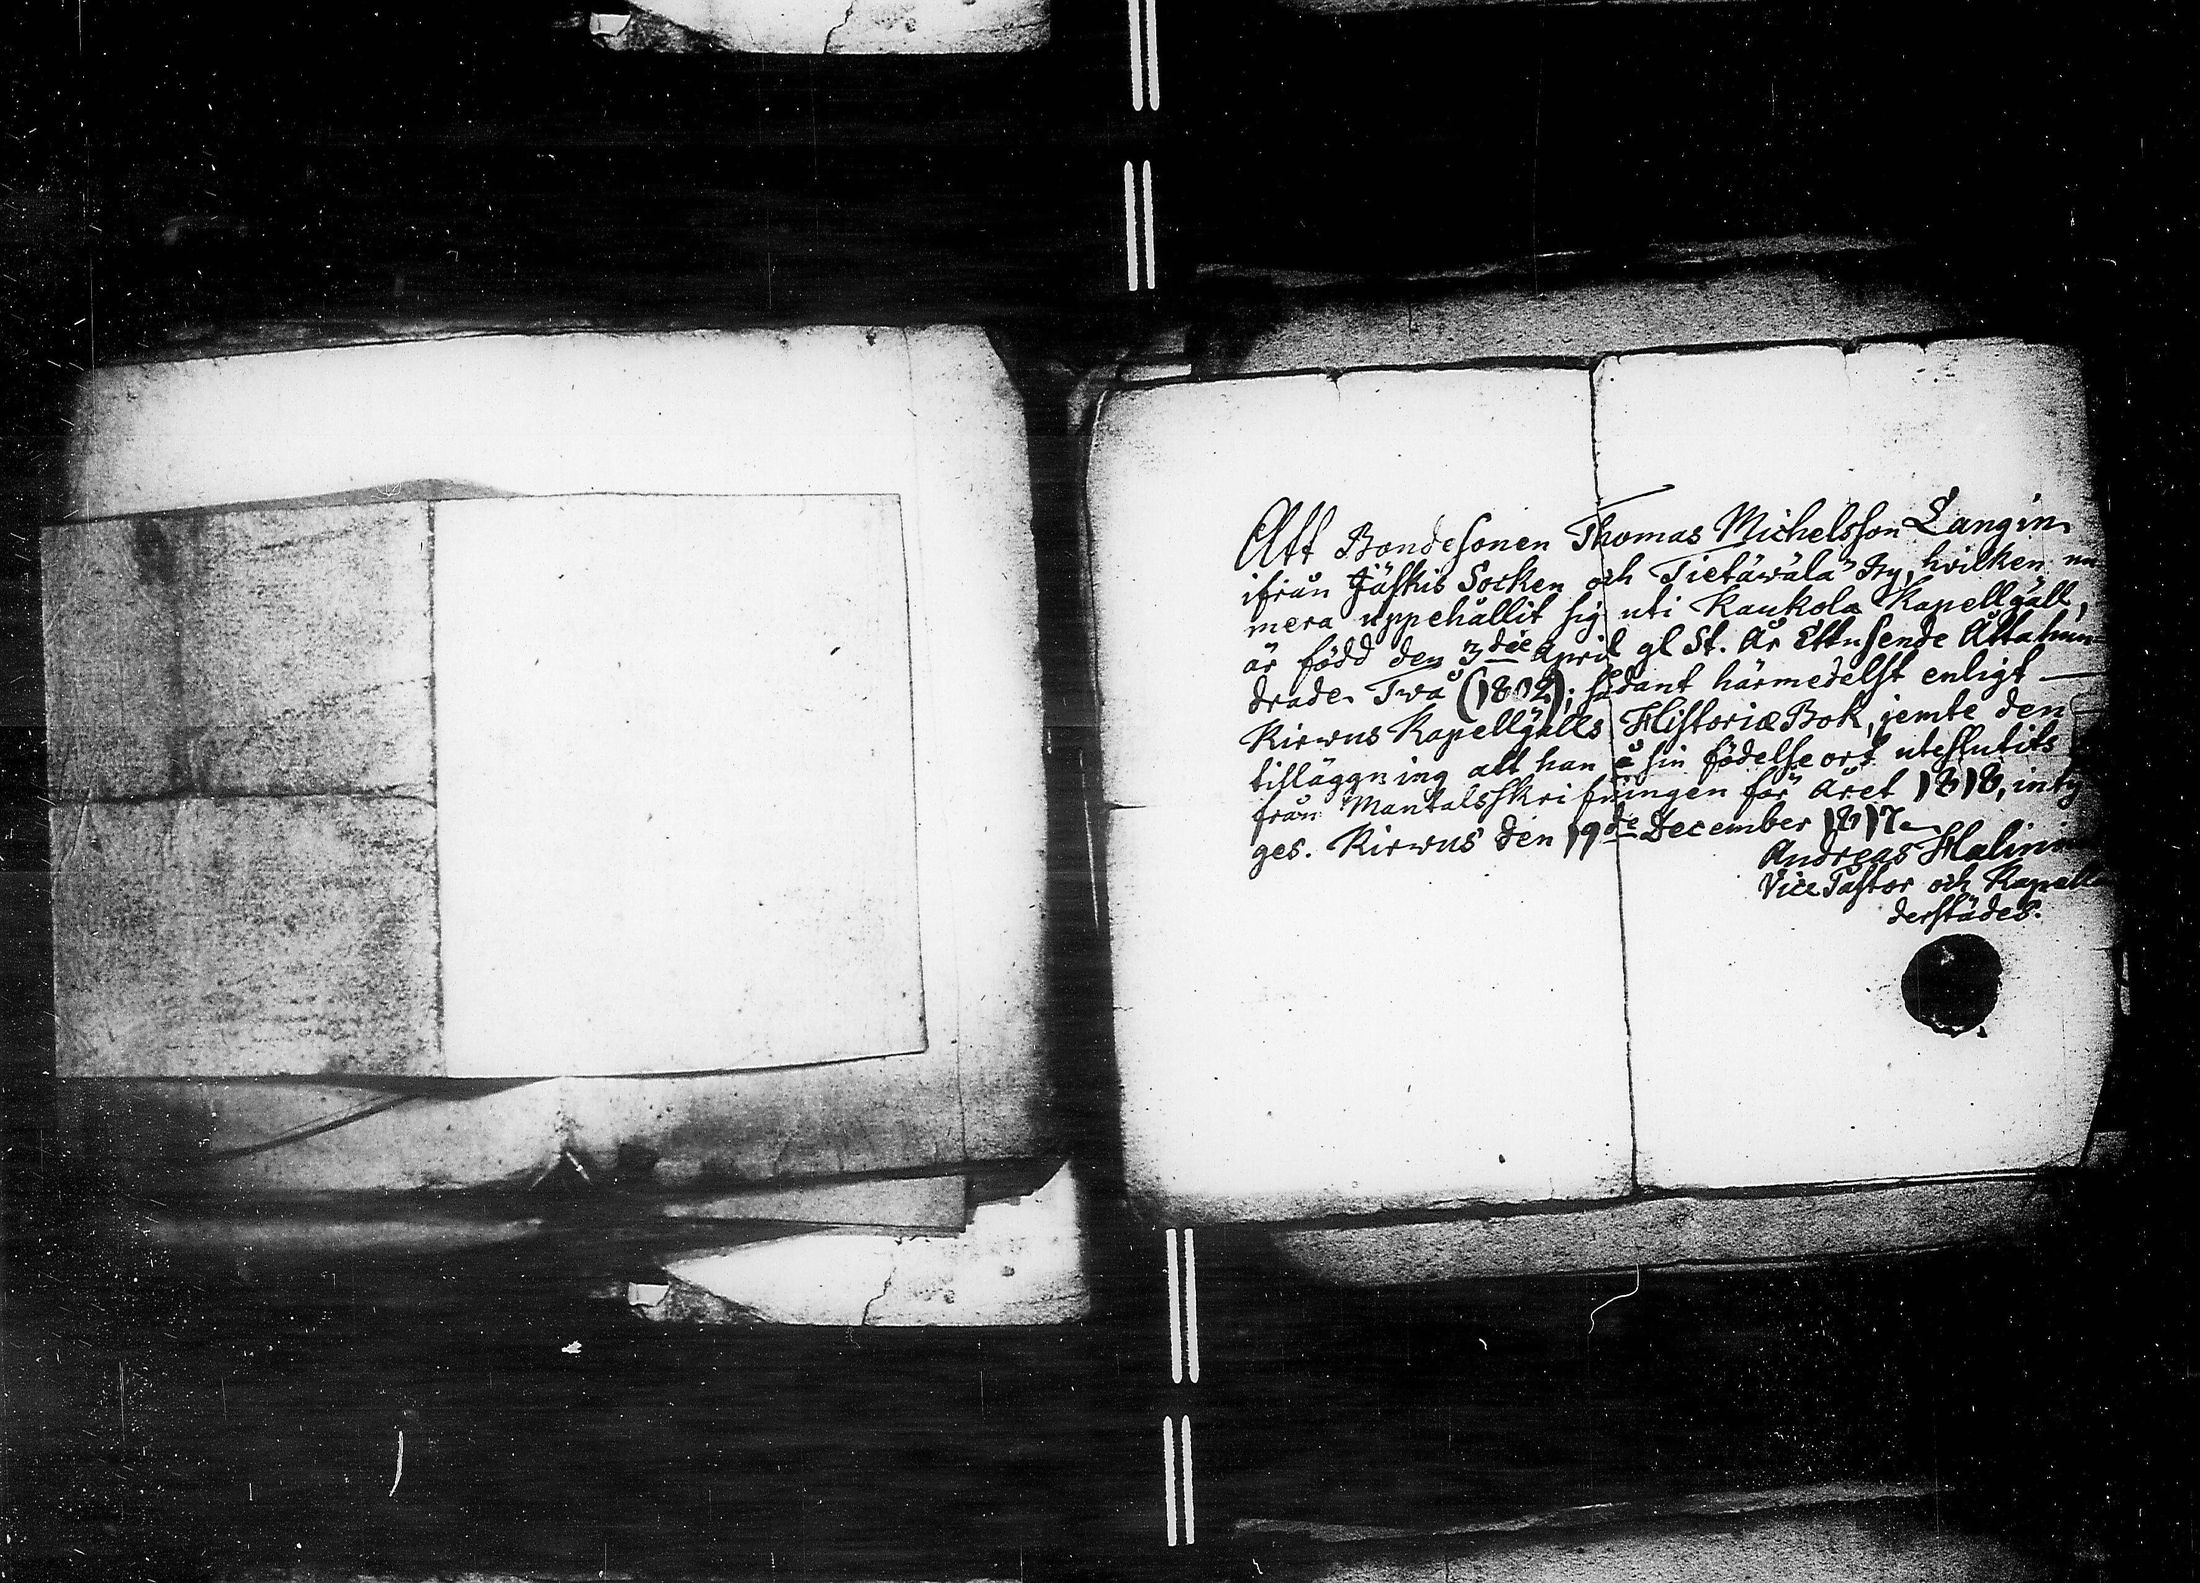 Att Bondesonen Thomas Michelsson Langin
ifrån Jäskis Socken och Tietäwälä By, hvilken nu
mera uppehållit sig uti Kaukola Kapellgäll,
är född den 3die April gl St. År Ettusende Åttahun-
drade Två (1802); sådant härmedelst enligt —
Kirwus Kapellgälls Historiæ Bok, jemte den
tilläggning att han å sin födelse ort uteslutits
från Mantalsskrifningen för Året 1818, inty
ges. Kirwus den 19de December 1817.
Andreas Halin
Vice Pastor och Kapell
derstädes.